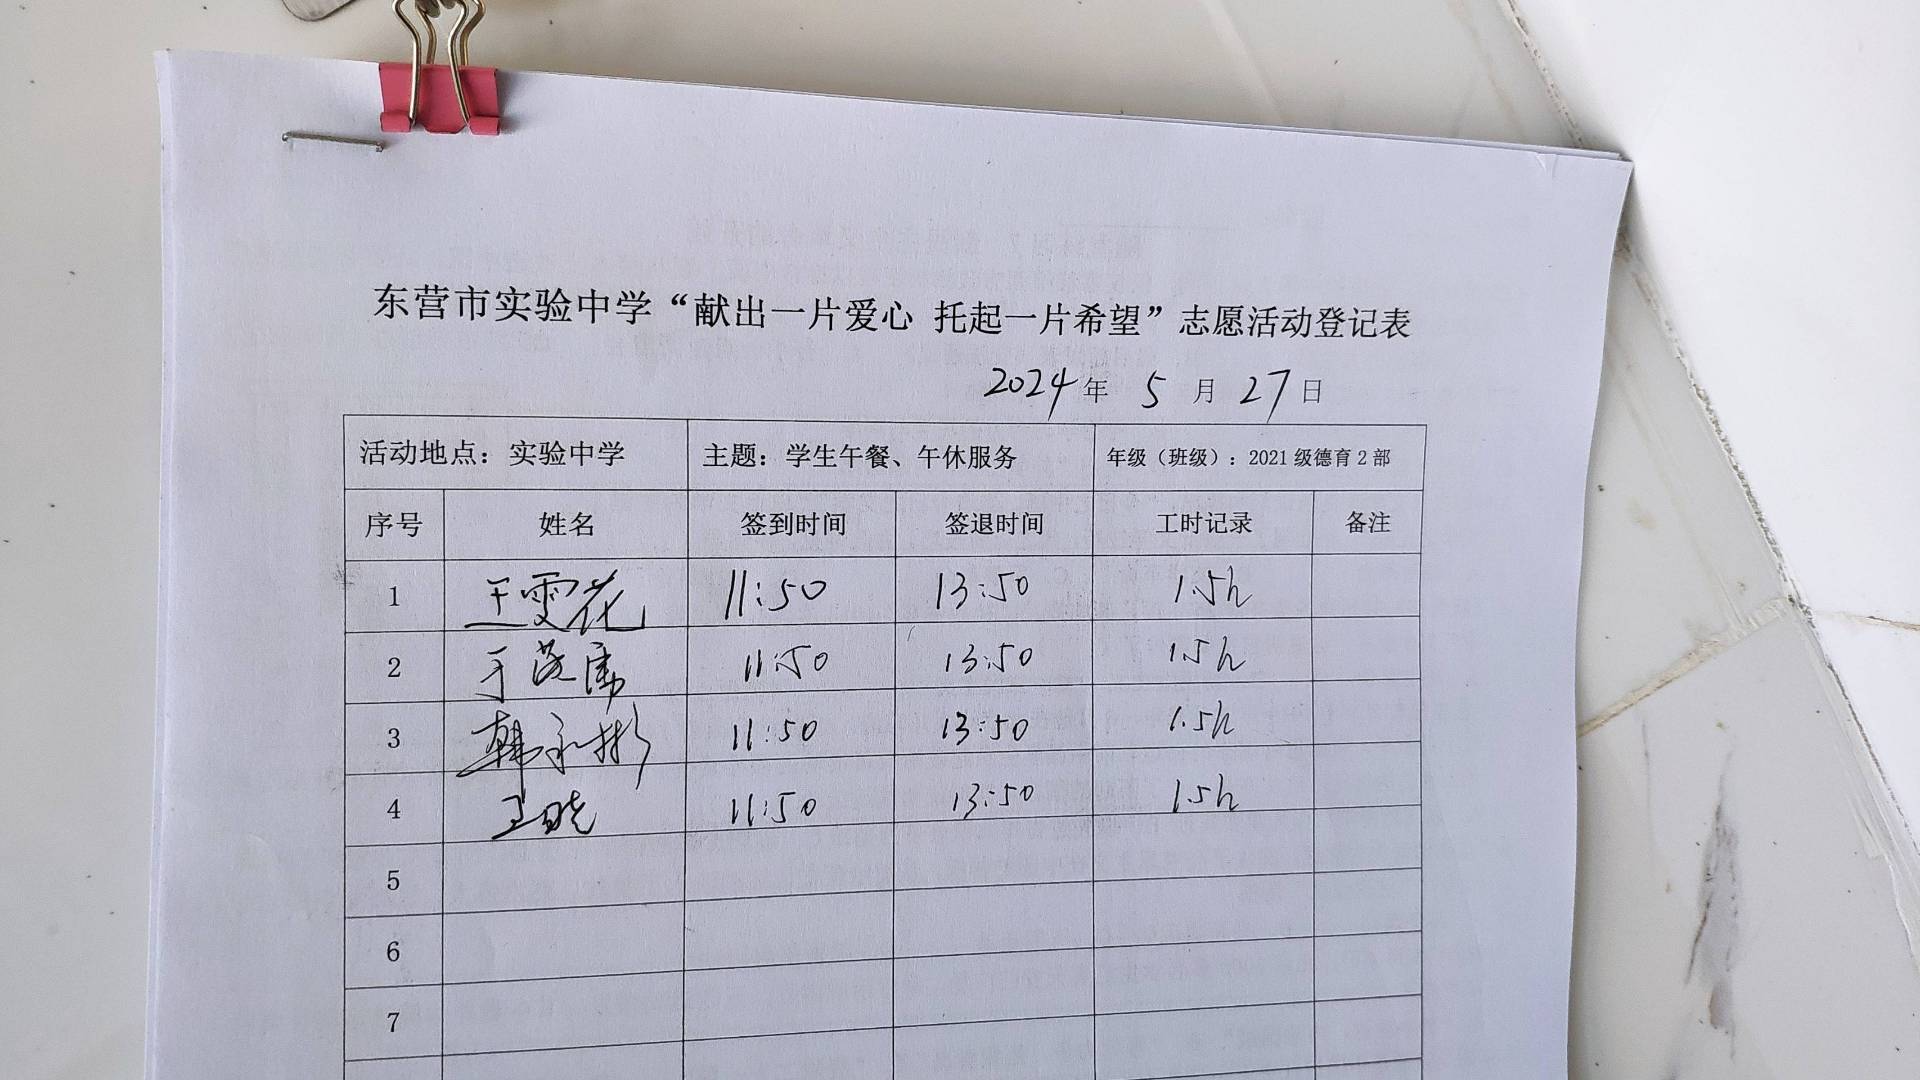 东营市实验中学“献出一片爱心 托起一片希望”志愿活动登记表
2024年 5 月 27日
活动地点：实验中学 主题：学生午餐、午休服务 年级（班级）：2021级德育2部
序号 姓名 签到时间 签退时间 工时记录 备注
1 王雯花 11:50 13:50 1.5h
2 于 11:50 13:50 1.5h
3 韩永彬 11:50 13:50 1.5h
4 王晓 11:50 13:50 1.5h
5
6
7